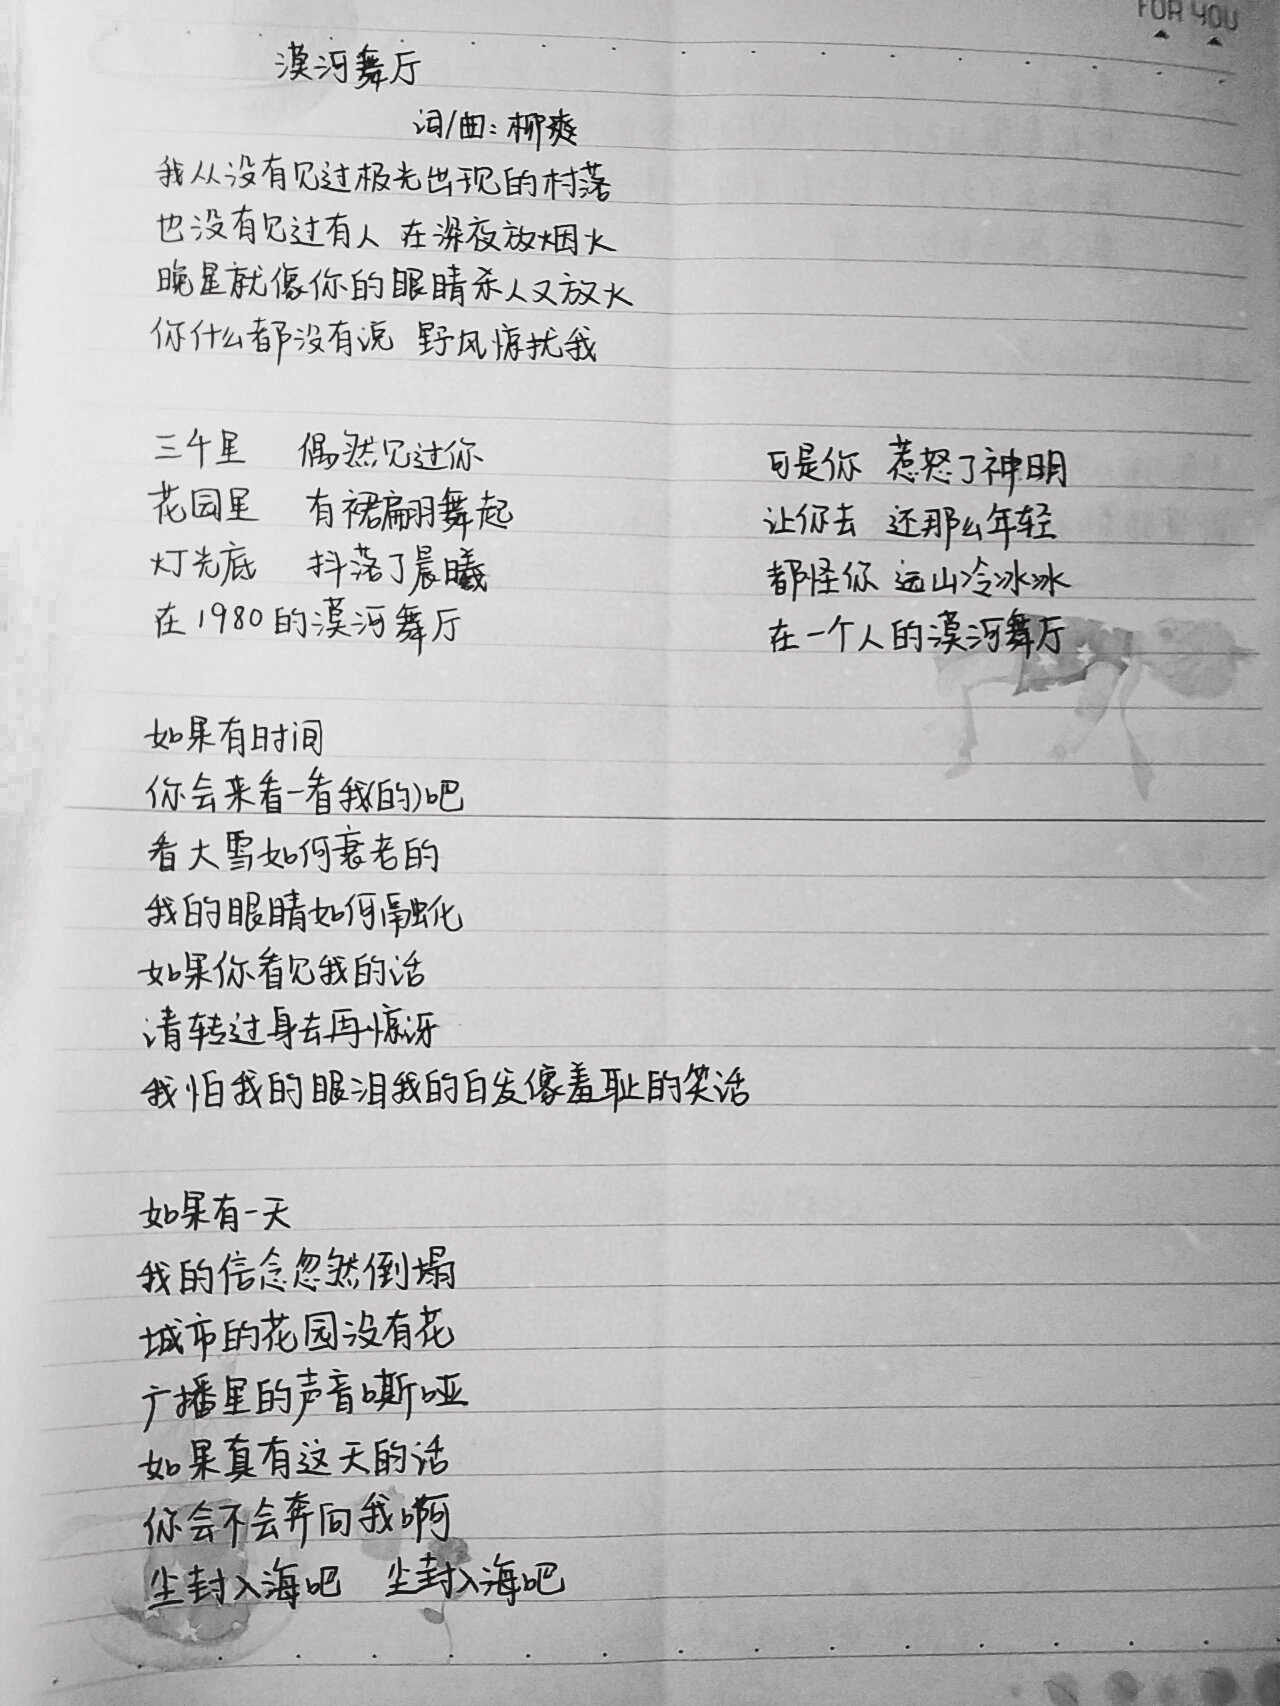 FOR YOU
漠河舞厅
词/曲:柳爽
我从没有见过极光出现的村落
也没有见过有人 在深夜放烟火
晚星就像你的眼睛杀人又放火
你什么都没有说 野风惊扰我
三千里 偶然见过你
花园里 有裙翩翩舞起
灯光底 抖落了晨曦
在1980的漠河舞厅
可是你 惹怒了神明
让你去 还那么年轻
都怪你 远山冷冰冰
在一个人的漠河舞厅
如果有时间
你会来看一看我(的)吧
看大雪如何衰老的
我的眼睛如何融化
如果你看见我的话
请转过身去再惊讶
我怕我的眼泪我的白发像羞耻的笑话
如果有一天
我的信念忽然倒塌
城市的花园没有花
广播里的声音嘶哑
如果真有这天的话
你会不会奔向我啊
尘封入海吧 尘封入海吧